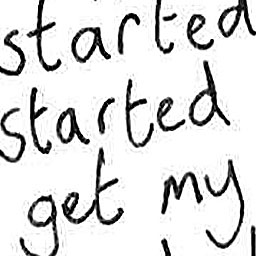 started
started
get my